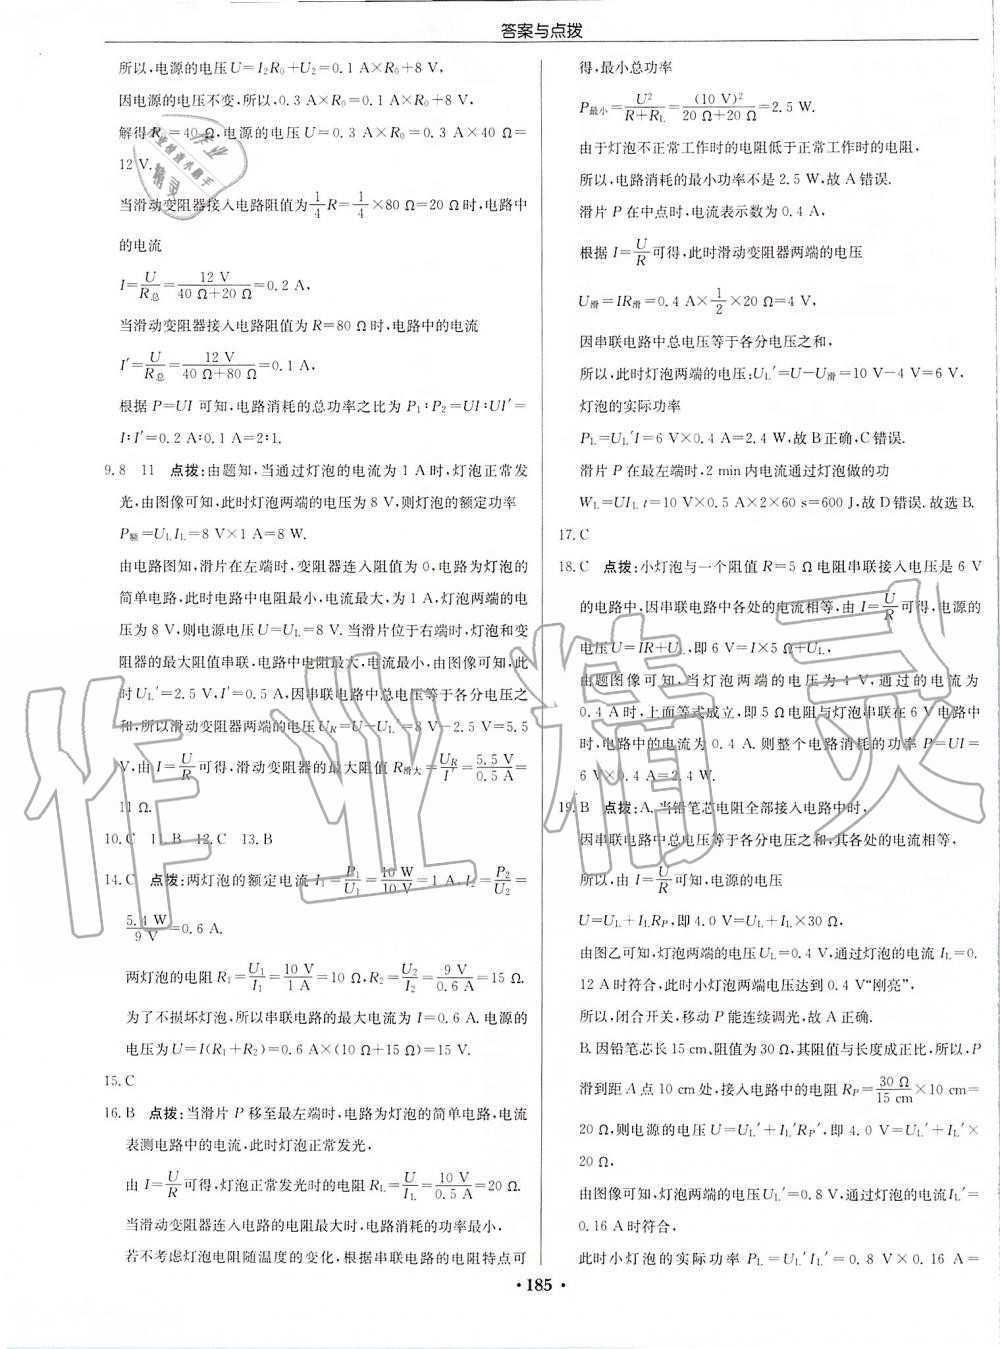 答案与点拨
所以,电源的电压U=I₂R₀+U₂=0.1 A×R₀+8 V,
因电源的电压不变,所以,0.3 A×R₀=0.1 A×R₀+8 V,
解得R₀=40 Ω,电源的电压U=0.3 A×R₀=0.3 A×40 Ω=
12 V.
当滑动变阻器接入电路阻值为1/4 R=1/4×80 Ω=20 Ω时,电路中
的电流
I=U/R总=12 V/(40 Ω+20 Ω)=0.2 A,
当滑动变阻器接入电路阻值为R=80 Ω时,电路中的电流
I′=U/R总=12 V/(40 Ω+80 Ω)=0.1 A,
根据P=UI可知,电路消耗的总功率之比为P₁∶P₂=UI∶UI′=
I∶I′=0.2 A∶0.1 A=2∶1.
9.8 11 点拨:由题知,当通过灯泡的电流为1 A时,灯泡正常发
光,由图像可知,此时灯泡两端的电压为8 V,则灯泡的额定功率
P额=ULIL=8 V×1 A=8 W.
由电路图知,滑片在左端时,变阻器连入阻值为0,电路为灯泡的
简单电路,此时电路中电阻最小,电流最大,为1 A,灯泡两端的电
压为8 V,则电源电压U=UL=8 V.当滑片位于右端时,灯泡和变
阻器的最大阻值串联,电路中电阻最大,电流最小,由图像可知,此
时UL′=2.5 V,I′=0.5 A,因串联电路中总电压等于各分电压之
和,所以滑动变阻器两端的电压UR=U−UL′=8 V−2.5 V=5.5
V,由I=U/R可得,滑动变阻器的最大阻值R滑大=UR/I′=5.5 V/0.5 A=
11 Ω.
10.C 11.B 12.C 13.B
14.C 点拨:两灯泡的额定电流I₁=P₁/U₁=10 W/10 V=1 A,I₂=P₂/U₂=
5.4 W/9 V=0.6 A.
两灯泡的电阻R₁=U₁/I₁=10 V/1 A=10 Ω,R₂=U₂/I₂=9 V/0.6 A=15 Ω.
为了不损坏灯泡,所以串联电路的最大电流为I=0.6 A.电源的
电压为U=I(R₁+R₂)=0.6 A×(10 Ω+15 Ω)=15 V.
15.C
16.B 点拨:当滑片P移至最左端时,电路为灯泡的简单电路,电流
表测电路中的电流,此时灯泡正常发光,
由I=U/R可得,灯泡正常发光时的电阻RL=U/IL=10 V/0.5 A=20 Ω.
当滑动变阻器连入电路的电阻最大时,电路消耗的功率最小,
若不考虑灯泡电阻随温度的变化,根据串联电路的电阻特点可
得,最小总功率
P最小=U²/(R+RL)=(10 V)²/(20 Ω+20 Ω)=2.5 W.
由于灯泡不正常工作时的电阻低于正常工作时的电阻,
所以,电路消耗的最小功率不是2.5 W,故A错误.
滑片P在中点时,电流表示数为0.4 A,
根据I=U/R可得,此时滑动变阻器两端的电压
U滑=IR滑=0.4 A×1/2×20 Ω=4 V,
因串联电路中总电压等于各分电压之和,
所以,此时灯泡两端的电压:UL′=U−U滑=10 V−4 V=6 V,
灯泡的实际功率
PL=UL′I=6 V×0.4 A=2.4 W,故B正确,C错误.
滑片P在最左端时,2 min内电流通过灯泡做的功
WL=UILt=10 V×0.5 A×2×60 s=600 J,故D错误.故选B.
17.C
18.C 点拨:小灯泡与一个阻值R=5 Ω电阻串联接入电压是6 V
的电路中,因串联电路中各处的电流相等,由I=U/R可得,电源的
电压U=IR+UL,即6 V=I×5 Ω+UL,
由题图像可知,当灯泡两端的电压为4 V,通过的电流为
0.4 A时,上面等式成立,即5 Ω电阻与灯泡串联在6 V电路中
时,电路中的电流为0.4 A.则整个电路消耗的功率P=UI=
6 V×0.4 A=2.4 W.
19.B 点拨:A.当铅笔芯电阻全部接入电路中时,
因串联电路中总电压等于各分电压之和,其各处的电流相等,
所以,由I=U/R可知,电源的电压
U=UL+ILRP,即4.0 V=UL+IL×30 Ω,
由图乙可知,灯泡两端的电压UL=0.4 V,通过灯泡的电流IL=0.
12 A时符合,此时小灯泡两端电压达到0.4 V“刚亮”,
所以,闭合开关,移动P能连续调光,故A正确.
B.因铅笔芯长15 cm、阻值为30 Ω,其阻值与长度成正比,所以,P
滑到距A点10 cm处,接入电路中的电阻RP=30 Ω/15 cm×10 cm=
20 Ω,则电源的电压U=UL′+IL′RP′,即4.0 V=UL′+IL′×
20 Ω,
由图像可知,灯泡两端的电压UL′=0.8 V,通过灯泡的电流IL′=
0.16 A时符合,
此时小灯泡的实际功率PL=UL′IL′=0.8 V×0.16 A=
• 185 •
作业精灵